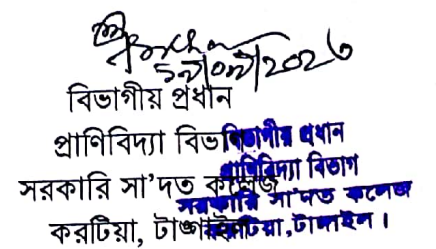 বিভাগীয় প্রধান
প্রাণিবিদ্যা বিভাগ
সরকারি সা'দত কলেজ
করটিয়া, টাঙ্গাইল
বিভাগীয় প্রধান
প্রাণিবিদ্যা বিভাগ
সরকারি সা'দত কলেজ
করটিয়া, টাঙ্গাইল।